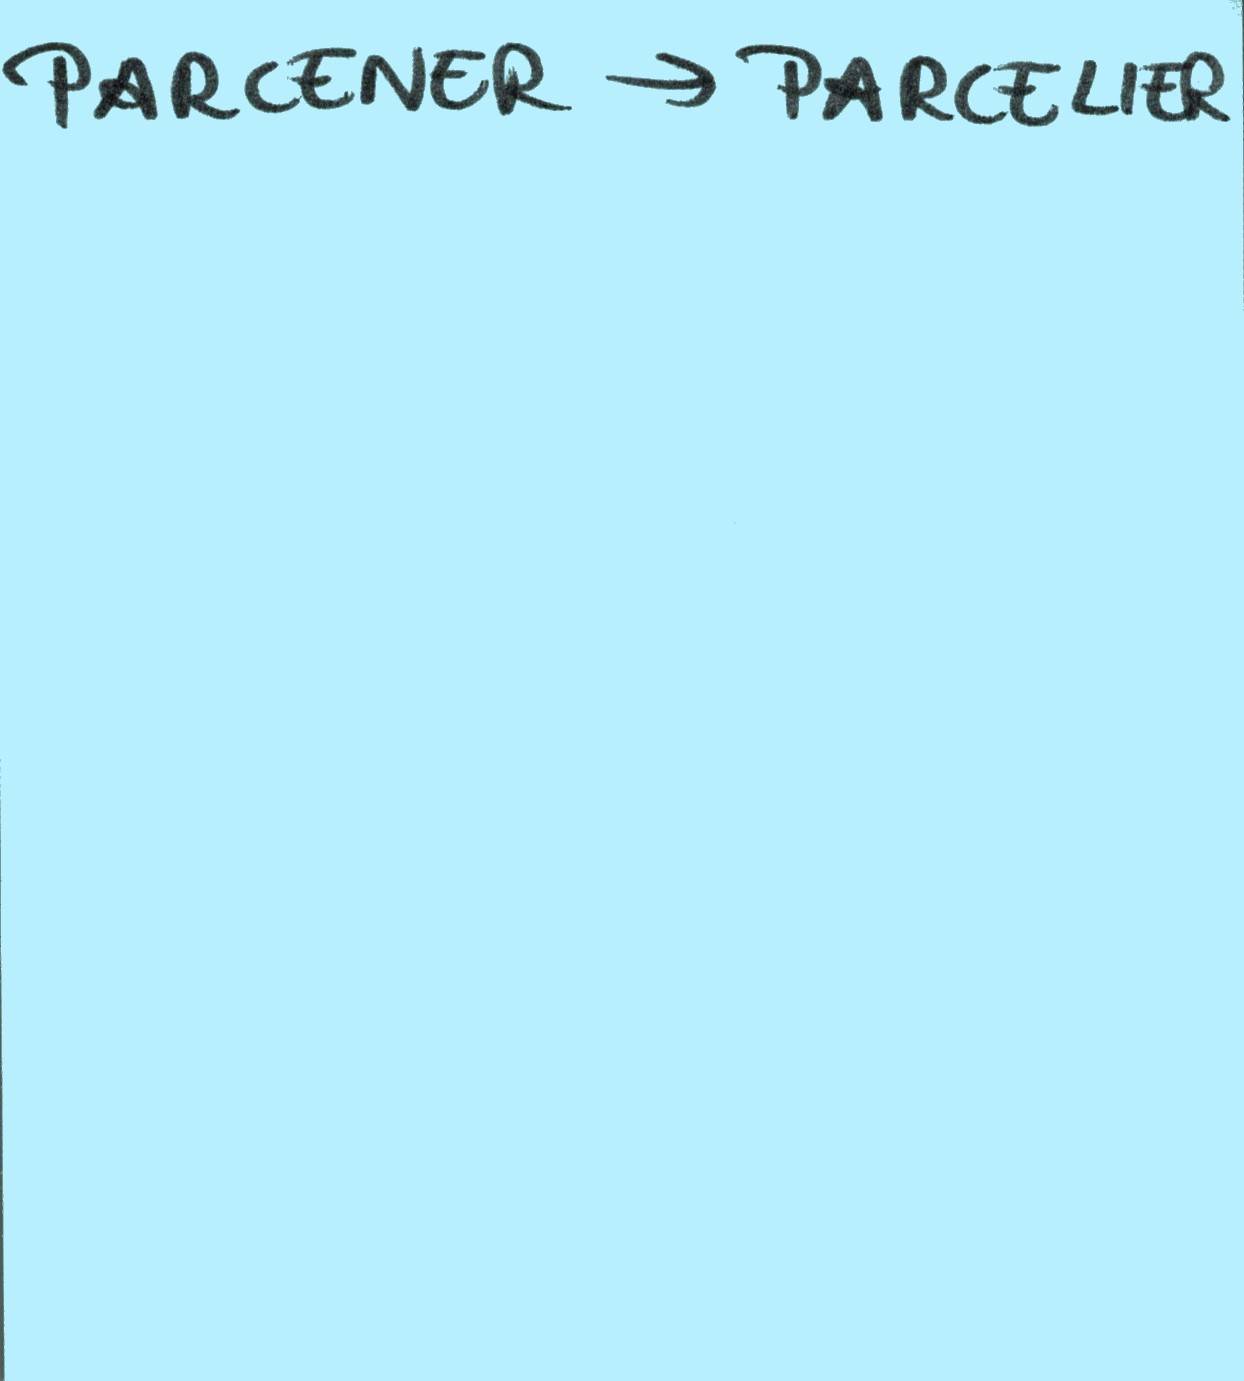 PARCENER → PARCELIER